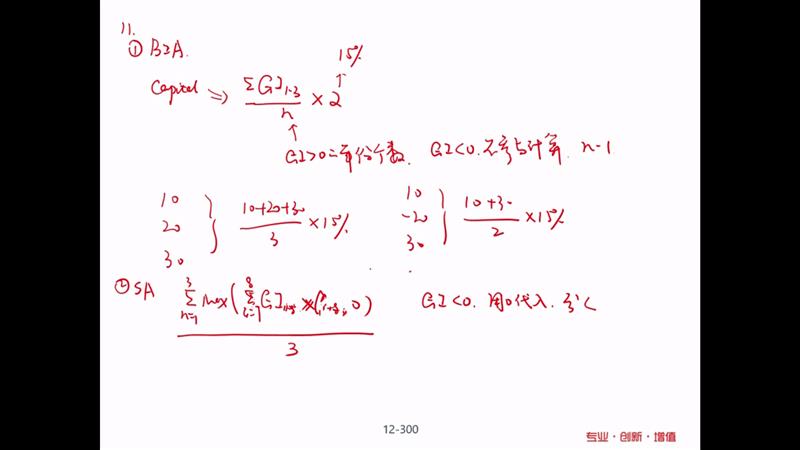 11.
① BIA.
15%
Capital ⇒ ΣGI₁₋₃ / n × 2
GI>0 年份个数. GI<0. 不参与计算. n-1
10
20
30
10+20+30 / 3 × 15%
10
-20
30
10+30 / 2 × 15%
② SA
Σ³ₙ₌₁ Max(Σ⁸ᵢ₌₁ GI , 0) / 3
GI<0. 用0代入.
12-300
专业·创新·增值